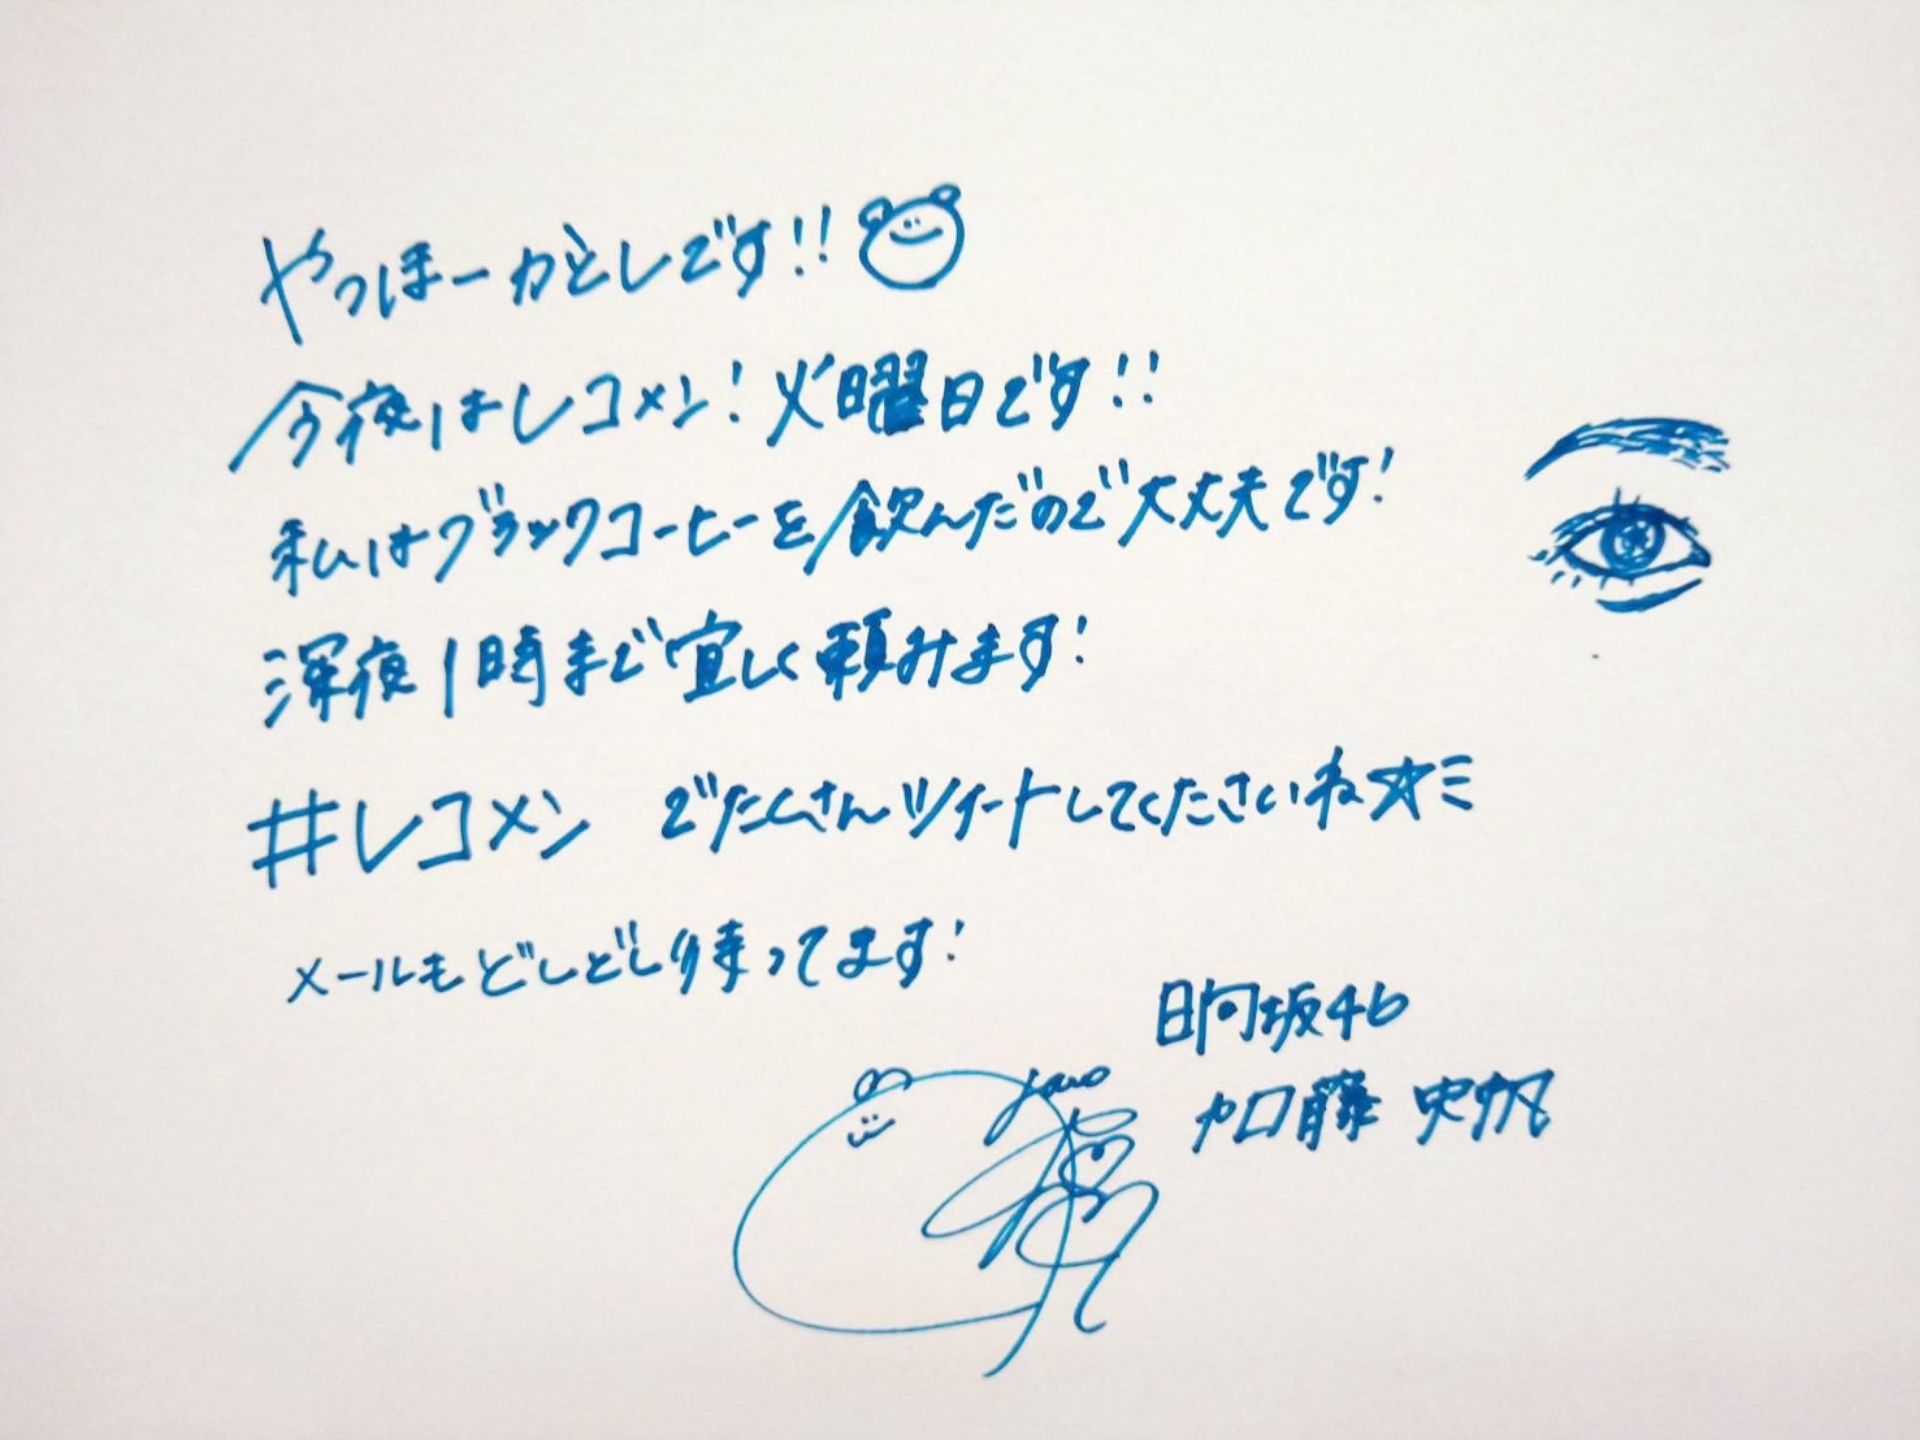 やっほーかとしです!!
今夜はレコメン!火曜日です!!
私はブラックコーヒーを飲んだので大丈夫です!
深夜1時まで宜しく頼みます!
#レコメン でたくさんツイートしてくださいね☆ミ
メールもどしどし待ってます!
日向坂46
加藤 史帆